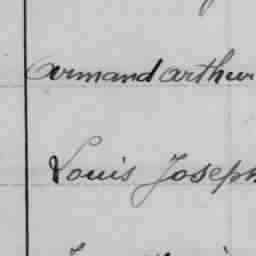 Armand Arthur
Louis Joseph